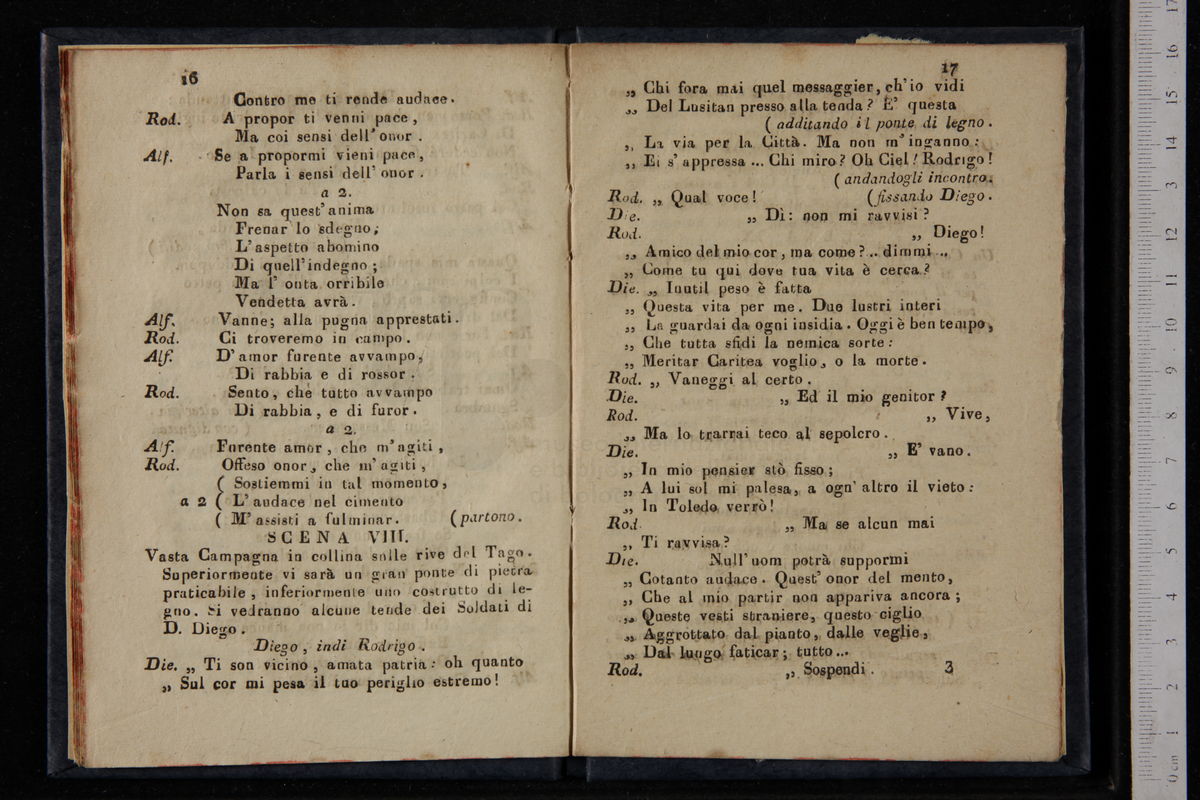 16
Contro me ti rende audace.
Rod. A propor ti venni pace,
Ma coi sensi dell' onor.
Alf. Se a propormi vieni pace,
Parla i sensi dell' onor.
a 2.
Non sa quest' anima
Frenar lo sdegno;
L' aspetto abomino
Di quell' indegno;
Ma l' onta orribile
Vendetta avrà.
Alf. Vanne; alla pugna apprestati.
Rod. Ci troveremo in campo.
Alf. D' amor furente avvampo,
Di rabbia e di rossor.
Rod. Sento, che tutto avvampo
Di rabbia, e di furor.
a 2.
Alf. Furente amor, che m' agiti,
Rod. Offeso onor, che m' agiti,
( Sostiemmi in tal momento,
a 2 ( L' audace nel cimento
( M' assisti a fulminar. (partono.
SCENA VIII.
Vasta Campagna in collina sulle rive del Tago.
Superiormente vi sarà un gran ponte di pietra
praticabile, inferiormente uno costrutto di le-
gno. Si vedranno alcune tende dei Soldati di
D. Diego.
Diego, indi Rodrigo.
Die. „ Ti son vicino, amata patria: oh quanto
„ Sul cor mi pesa il tuo periglio estremo!
17
„ Chi fora mai quel messaggier, ch' io vidi
„ Del Lusitan presso alla tenda? E' questa
( additando il ponte di legno.
„ La via per la Città. Ma non m' inganno:
„ Ei s' appressa ... Chi miro? Oh Ciel! Rodrigo!
( andandogli incontro.
Rod. „ Qual voce! (fissando Diego.
Die. „ Dì: non mi ravvisi?
Rod. „ Diego!
„ Amico del mio cor, ma come? .. dimmi ...
„ Come tu qui dove tua vita è cerca?
Die. „ Inutil peso è fatta
„ Questa vita per me. Due lustri interi
„ La guardai da ogni insidia. Oggi è ben tempo,
„ Che tutta sfidi la nemica sorte:
„ Meritar Caritea voglio, o la morte.
Rod. „ Vaneggi al certo.
Die. „ Ed il mio genitor?
Rod. „ Vive,
„ Ma lo trarrai teco al sepolcro.
Die. „ E' vano.
„ In mio pensier stò fisso;
„ A lui sol mi palesa, a ogn' altro il vieto:
„ In Toledo verrò!
Rod. „ Ma se alcun mai
„ Ti ravvisa?
Die. Null' uom potrà suppormi
„ Cotanto audace. Quest' onor del mento,
„ Che al mio partir non appariva ancora;
„ Queste vesti straniere, questo ciglio
„ Aggrottato dal pianto, dalle veglie,
„ Dal lungo faticar; tutto...
Rod. „ Sospendi. 3